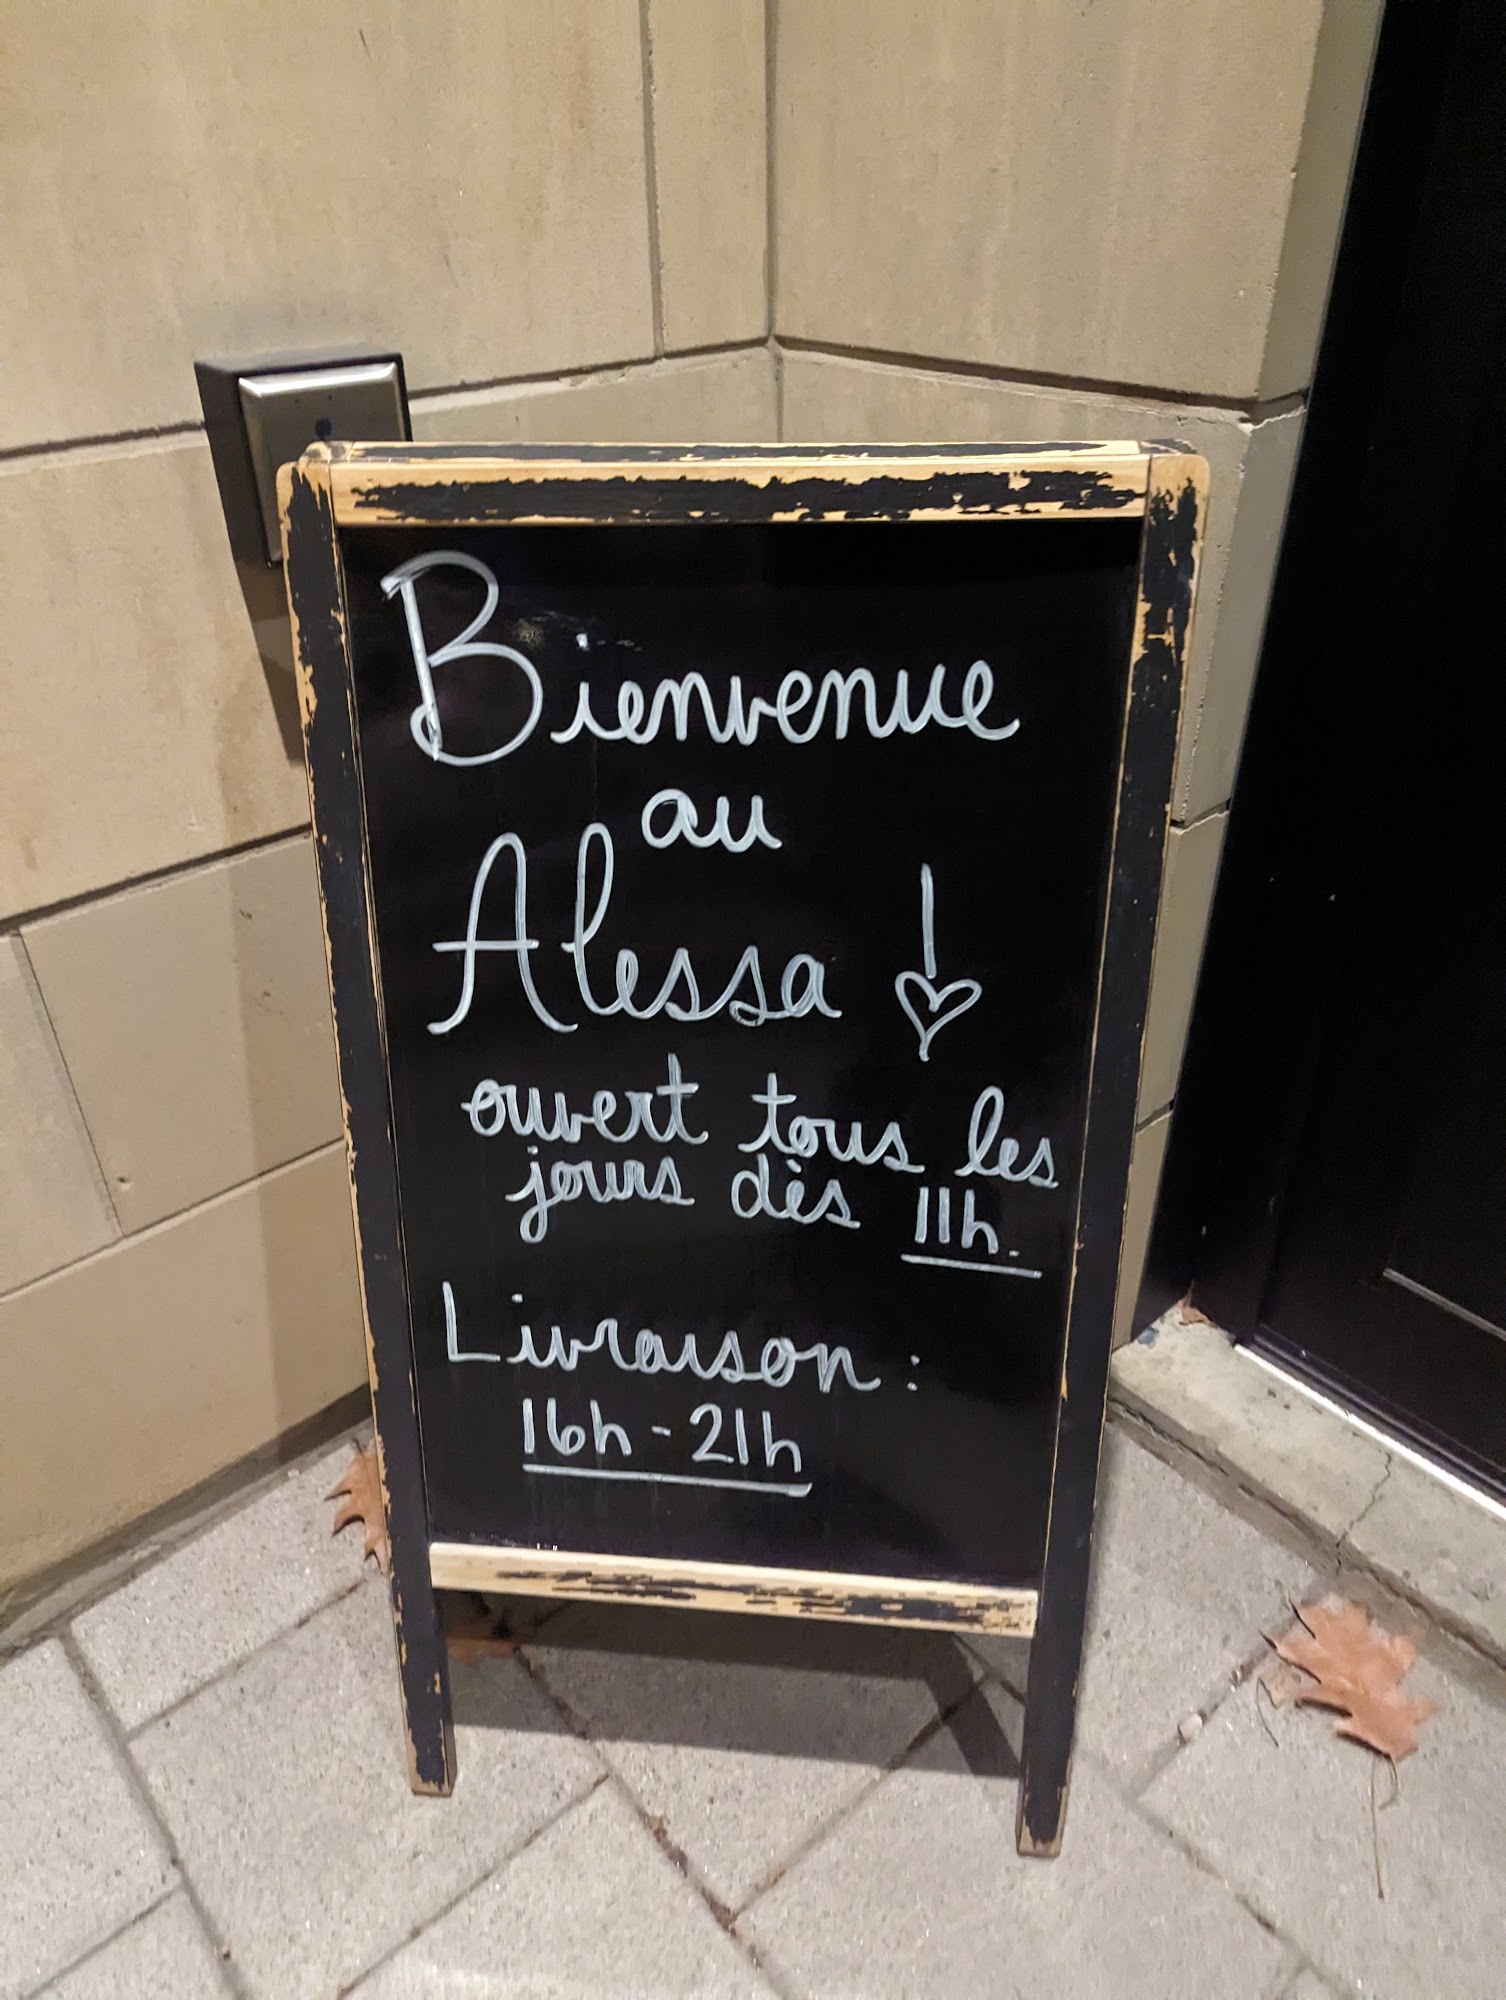 Bienvenue
au
Alessa
ouvert tous les
jours dès 11h.
Livraison :
16h - 21h